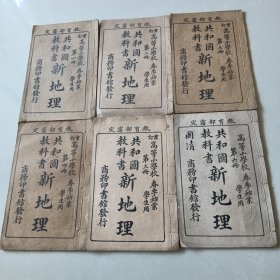 教育部審定
訂重 高等小學校 春季始業
共和國教科書 新地理
第一冊 學生用
商務印書館發行
教育部審定
訂重 高等小學校 春季始業
共和國教科書 新地理
第二冊 學生用
商務印書館發行
教育部審定
訂重 高等小學校 春季始業
共和國教科書 新地理
第三冊 學生用
商務印書館發行
教育部審定
訂重 高等小學校 春季始業
共和國教科書 新地理
第四冊 學生用
商務印書館發行
教育部審定
訂重 高等小學校 春季始業
共和國教科書 新地理
學生用
商務印書館發行
教育部審定
訂重 高等小學校 春季始業
共和國教科書 新地理
第六冊 學生用
商務印書館發行